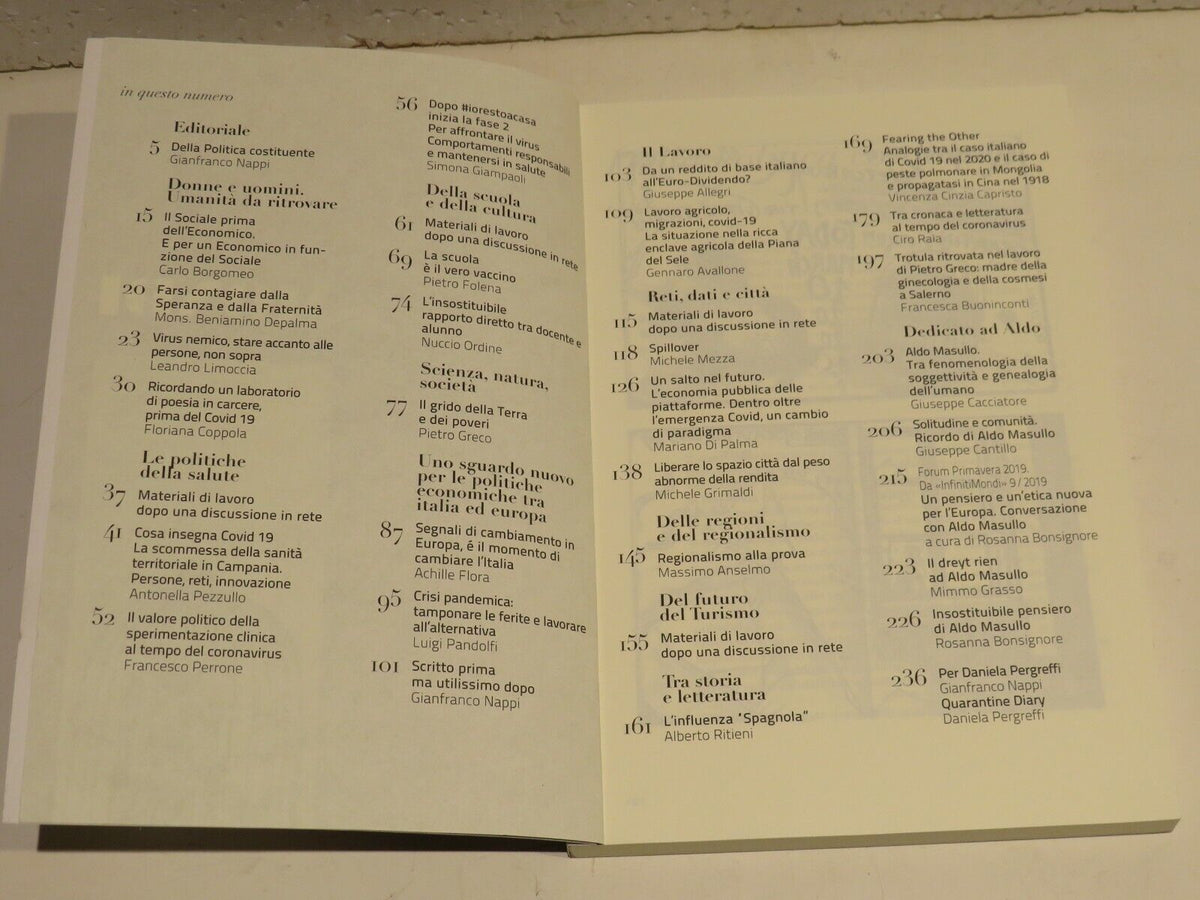 in questo numero
Editoriale
5 Della Politica costituente
Gianfranco Nappi
Donne e uomini.
Umanità da ritrovare
15 Il Sociale prima
dell'Economico.
E per un Economico in fun-
zione del Sociale
Carlo Borgomeo
20 Farsi contagiare dalla
Speranza e dalla Fraternità
Mons. Beniamino Depalma
23 Virus nemico, stare accanto alle
persone, non sopra
Leandro Limoccia
30 Ricordando un laboratorio
di poesia in carcere,
prima del Covid 19
Floriana Coppola
Le politiche
della salute
37 Materiali di lavoro
dopo una discussione in rete
41 Cosa insegna Covid 19
La scommessa della sanità
territoriale in Campania.
Persone, reti, innovazione
Antonella Pezzullo
52 Il valore politico della
sperimentazione clinica
al tempo del coronavirus
Francesco Perrone
56 Dopo #iorestoacasa
inizia la fase 2
Per affrontare il virus
Comportamenti responsabili
e mantenersi in salute
Simona Giampaoli
Della scuola
e della cultura
61 Materiali di lavoro
dopo una discussione in rete
69 La scuola
è il vero vaccino
Pietro Folena
74 L'insostituibile
rapporto diretto tra docente e
alunno
Nuccio Ordine
Scienza, natura,
società
77 Il grido della Terra
e dei poveri
Pietro Greco
Uno sguardo nuovo
per le politiche
economiche tra
italia ed europa
87 Segnali di cambiamento in
Europa, é il momento di
cambiare l'Italia
Achille Flora
95 Crisi pandemica:
tamponare le ferite e lavorare
all'alternativa
Luigi Pandolfi
101 Scritto prima
ma utilissimo dopo
Gianfranco Nappi
Il Lavoro
103 Da un reddito di base italiano
all'Euro-Dividendo?
Giuseppe Allegri
109 Lavoro agricolo,
migrazioni, covid-19
La situazione nella ricca
enclave agricola della Piana
del Sele
Gennaro Avallone
Reti, dati e città
115 Materiali di lavoro
dopo una discussione in rete
118 Spillover
Michele Mezza
126 Un salto nel futuro.
L'economia pubblica delle
piattaforme. Dentro oltre
l'emergenza Covid, un cambio
di paradigma
Mariano Di Palma
138 Liberare lo spazio città dal peso
abnorme della rendita
Michele Grimaldi
Delle regioni
e del regionalismo
145 Regionalismo alla prova
Massimo Anselmo
Del futuro
del Turismo
155 Materiali di lavoro
dopo una discussione in rete
Tra storia
e letteratura
161 L'influenza "Spagnola"
Alberto Ritieni
169 Fearing the Other
Analogie tra il caso italiano
di Covid 19 nel 2020 e il caso di
peste polmonare in Mongolia
e propagatasi in Cina nel 1918
Vincenza Cinzia Capristo
179 Tra cronaca e letteratura
al tempo del coronavirus
Ciro Raia
197 Trotula ritrovata nel lavoro
di Pietro Greco: madre della
ginecologia e della cosmesi
a Salerno
Francesca Buoninconti
Dedicato ad Aldo
203 Aldo Masullo.
Tra fenomenologia della
soggettività e genealogia
dell'umano
Giuseppe Cacciatore
206 Solitudine e comunità.
Ricordo di Aldo Masullo
Giuseppe Cantillo
215 Forum Primavera 2019.
Da «InfinitiMondi» 9/2019
Un pensiero e un'etica nuova
per l'Europa. Conversazione
con Aldo Masullo
a cura di Rosanna Bonsignore
223 Il dreyt rien
ad Aldo Masullo
Mimmo Grasso
226 Insostituibile pensiero
di Aldo Masullo
Rosanna Bonsignore
236 Per Daniela Pergreffi
Gianfranco Nappi
Quarantine Diary
Daniela Pergreffi